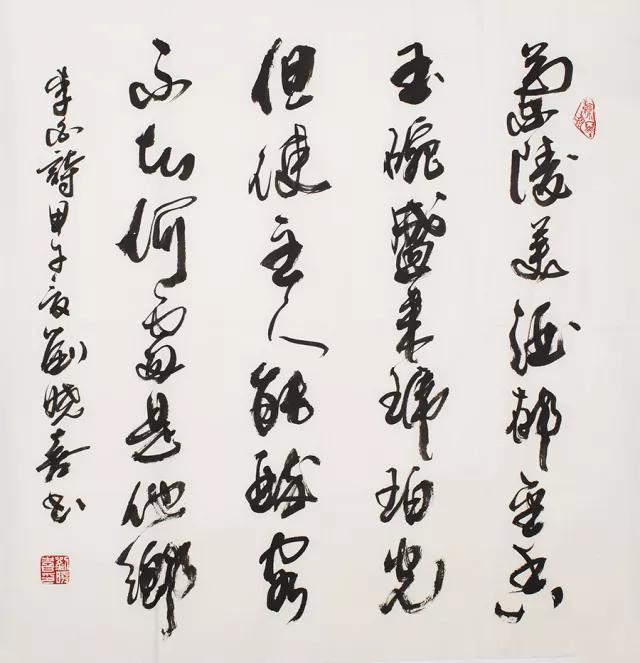 蘭陵美酒郁金香
玉碗盛来琥珀光
但使主人能醉客
不知何處是他鄉
李白詩甲午夏劉晓喜书